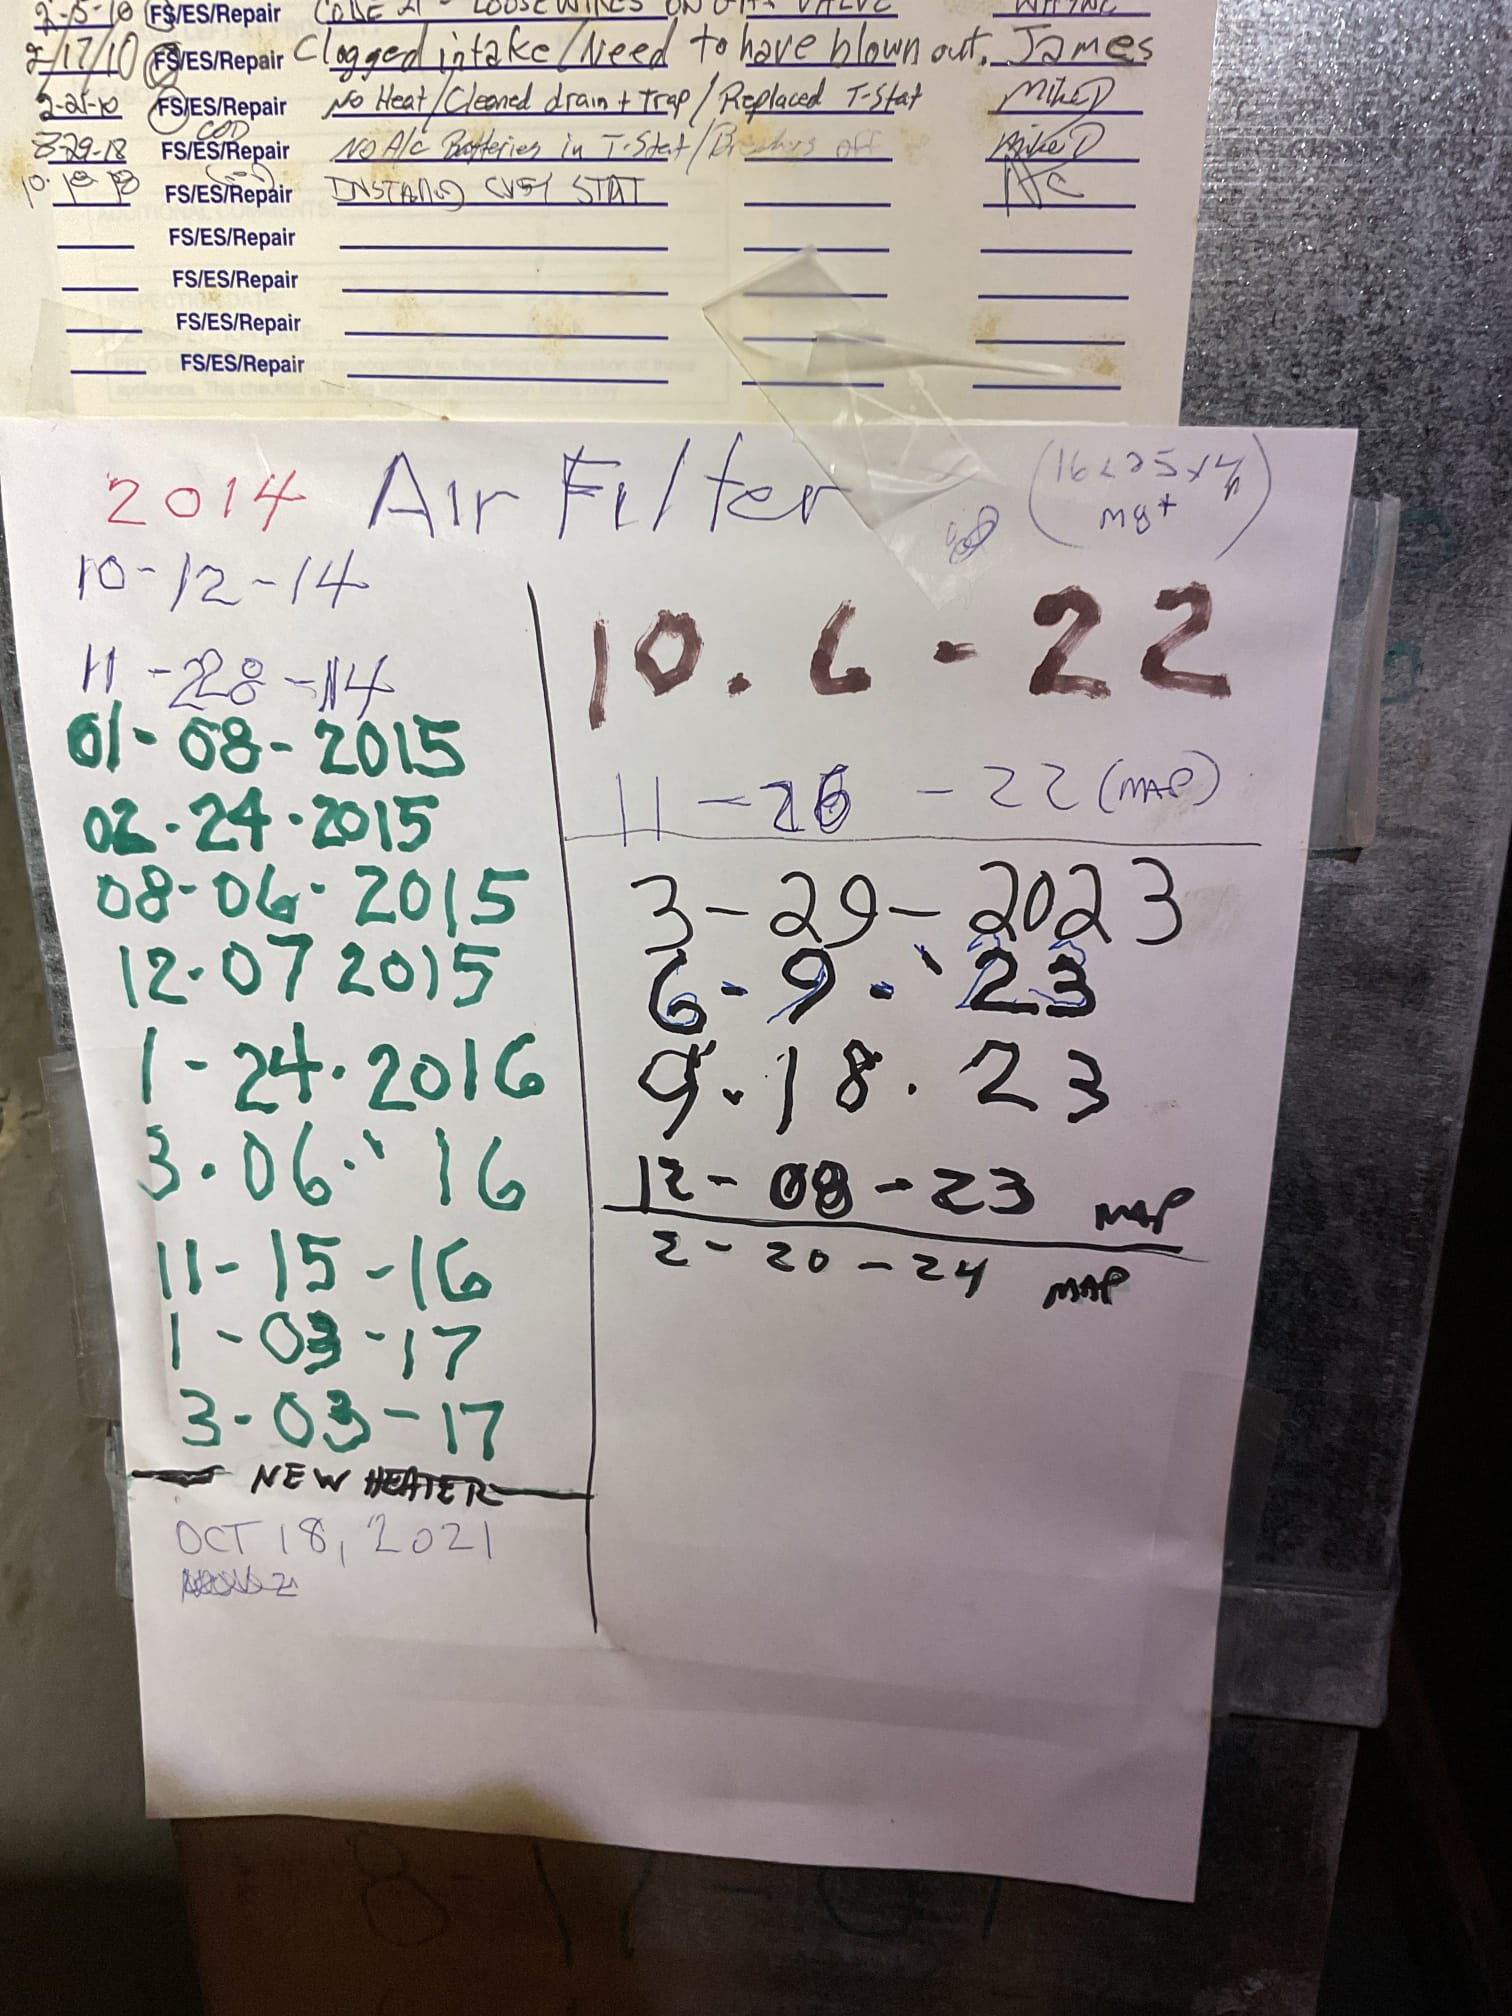 2-15-10 FS/ES/Repair CODE 21 - LOOSE WIRES ON GAS VALVE WAYNE
2/17/10 FS/ES/Repair Clogged intake/Need to have blown out. James
2-21-10 FS/ES/Repair No Heat/Cleaned drain + Trap/Replaced T-Stat Mike D
COD
8-29-18 FS/ES/Repair No A/C Batteries in T-Stat/ off Mike D
FS/ES/Repair STAT
FS/ES/Repair
FS/ES/Repair
FS/ES/Repair
FS/ES/Repair
2014 Air Filter
(16x25x4
10-12-14
11-28-14
01-08-2015
02-24-2015
08-06-2015
12-07 2015
1-24-2016
3-06-16
11-15-16
1-03-17
3-03-17
NEW HEATER
OCT 18, 2021
10.6-22
11-26-22 (MAP)
3-29-2023
6-9-23
9.18.23
12-08-23 MAP
2-20-24 MAP
8-17-